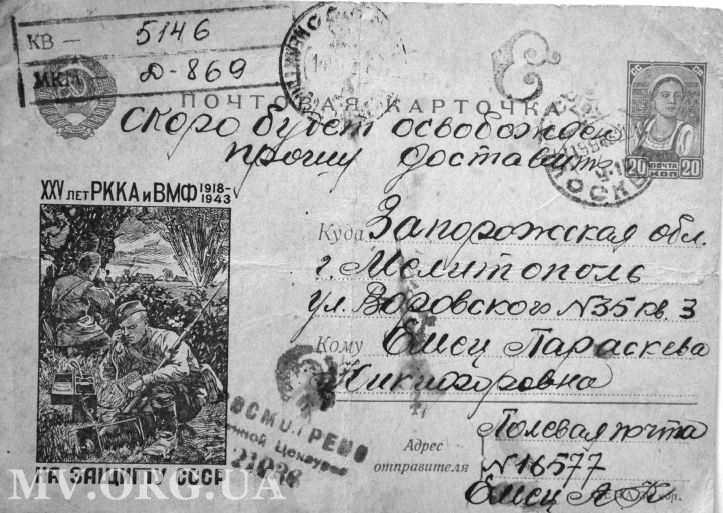 КВ — 5146
МКМ Д-869
ПОЧТОВАЯ КАРТОЧКА
скоро будет освобожден
прошу доставить
ПОЧТА
20 КОП 20
МОСКВА
XXV ЛЕТ РККА и ВМФ 1918-1943
Куда Запорожская обл.
г. Мелитополь
ул. Воровского N35 кв. 3
Кому Емец Параскева
Никифоровна
НА ЗАЩИТУ СССР
ПРОСМОТРЕНО
Военной Цензурой
21036
Адрес отправителя
Полевая почта
N16577
Емец
MV.ORG.UA